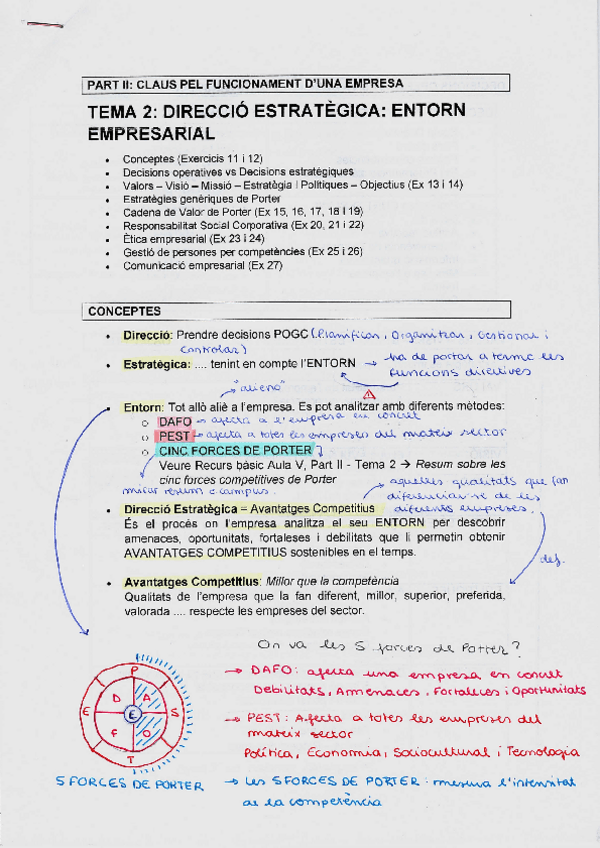 PART II: CLAUS PEL FUNCIONAMENT D'UNA EMPRESA
TEMA 2: DIRECCIÓ ESTRATÈGICA: ENTORN
EMPRESARIAL
• Conceptes (Exercicis 11 i 12)
• Decisions operatives vs Decisions estratégiques
• Valors – Visió – Missió – Estratègia i Polítiques – Objectius (Ex 13 i 14)
• Estratègies genèriques de Porter
• Cadena de Valor de Porter (Ex 15, 16, 17, 18 i 19)
• Responsabilitat Social Corporativa (Ex 20, 21 i 22)
• Ètica empresarial (Ex 23 i 24)
• Gestió de persones per competències (Ex 25 i 26)
• Comunicació empresarial (Ex 27)
CONCEPTES
• Direcció: Prendre decisions POGC (Planificar, Organitzar, Gestionar i
controlar)
• Estratègica: .... tenint en compte l'ENTORN → ha de portar a terme les
funcions directives
"alieno"
• Entorn: Tot allò aliè a l'empresa. Es pot analitzar amb diferents mètodes:
o DAFO → afecta a l'empresa en concret
o PEST → afecta a totes les empreses del mateix sector
o CINC FORCES DE PORTER
Veure Recurs bàsic Aula V, Part II - Tema 2 → Resum sobre les
cinc forces competitives de Porter
mirar resum a campus.
aquelles qualitats que fan
• Direcció Estratègica = Avantatges Competitius
diferenciar-se de les
diferents empreses.
És el procés on l'empresa analitza el seu ENTORN per descobrir
amenaces, oportunitats, fortaleses i debilitats que li permetin obtenir
AVANTATGES COMPETITIUS sostenibles en el temps.
def.
• Avantatges Competitius: Millor que la competència
Qualitats de l'empresa que la fan diferent, millor, superior, preferida,
valorada .... respecte les empreses del sector.
On va les 5 forces de Porter?
P
D A
E E S
F O
T
5 FORCES DE PORTER
→ DAFO: afecta una empresa en concret
Debilitats, Amenaces, Fortaleces i Oportunitats
→ PEST: Afecta a totes les empreses del
mateix sector
Política, Economia, Sociocultural i Tecnologia
→ Les 5 FORCES DE PORTER: mesura l'intensitat
de la competència